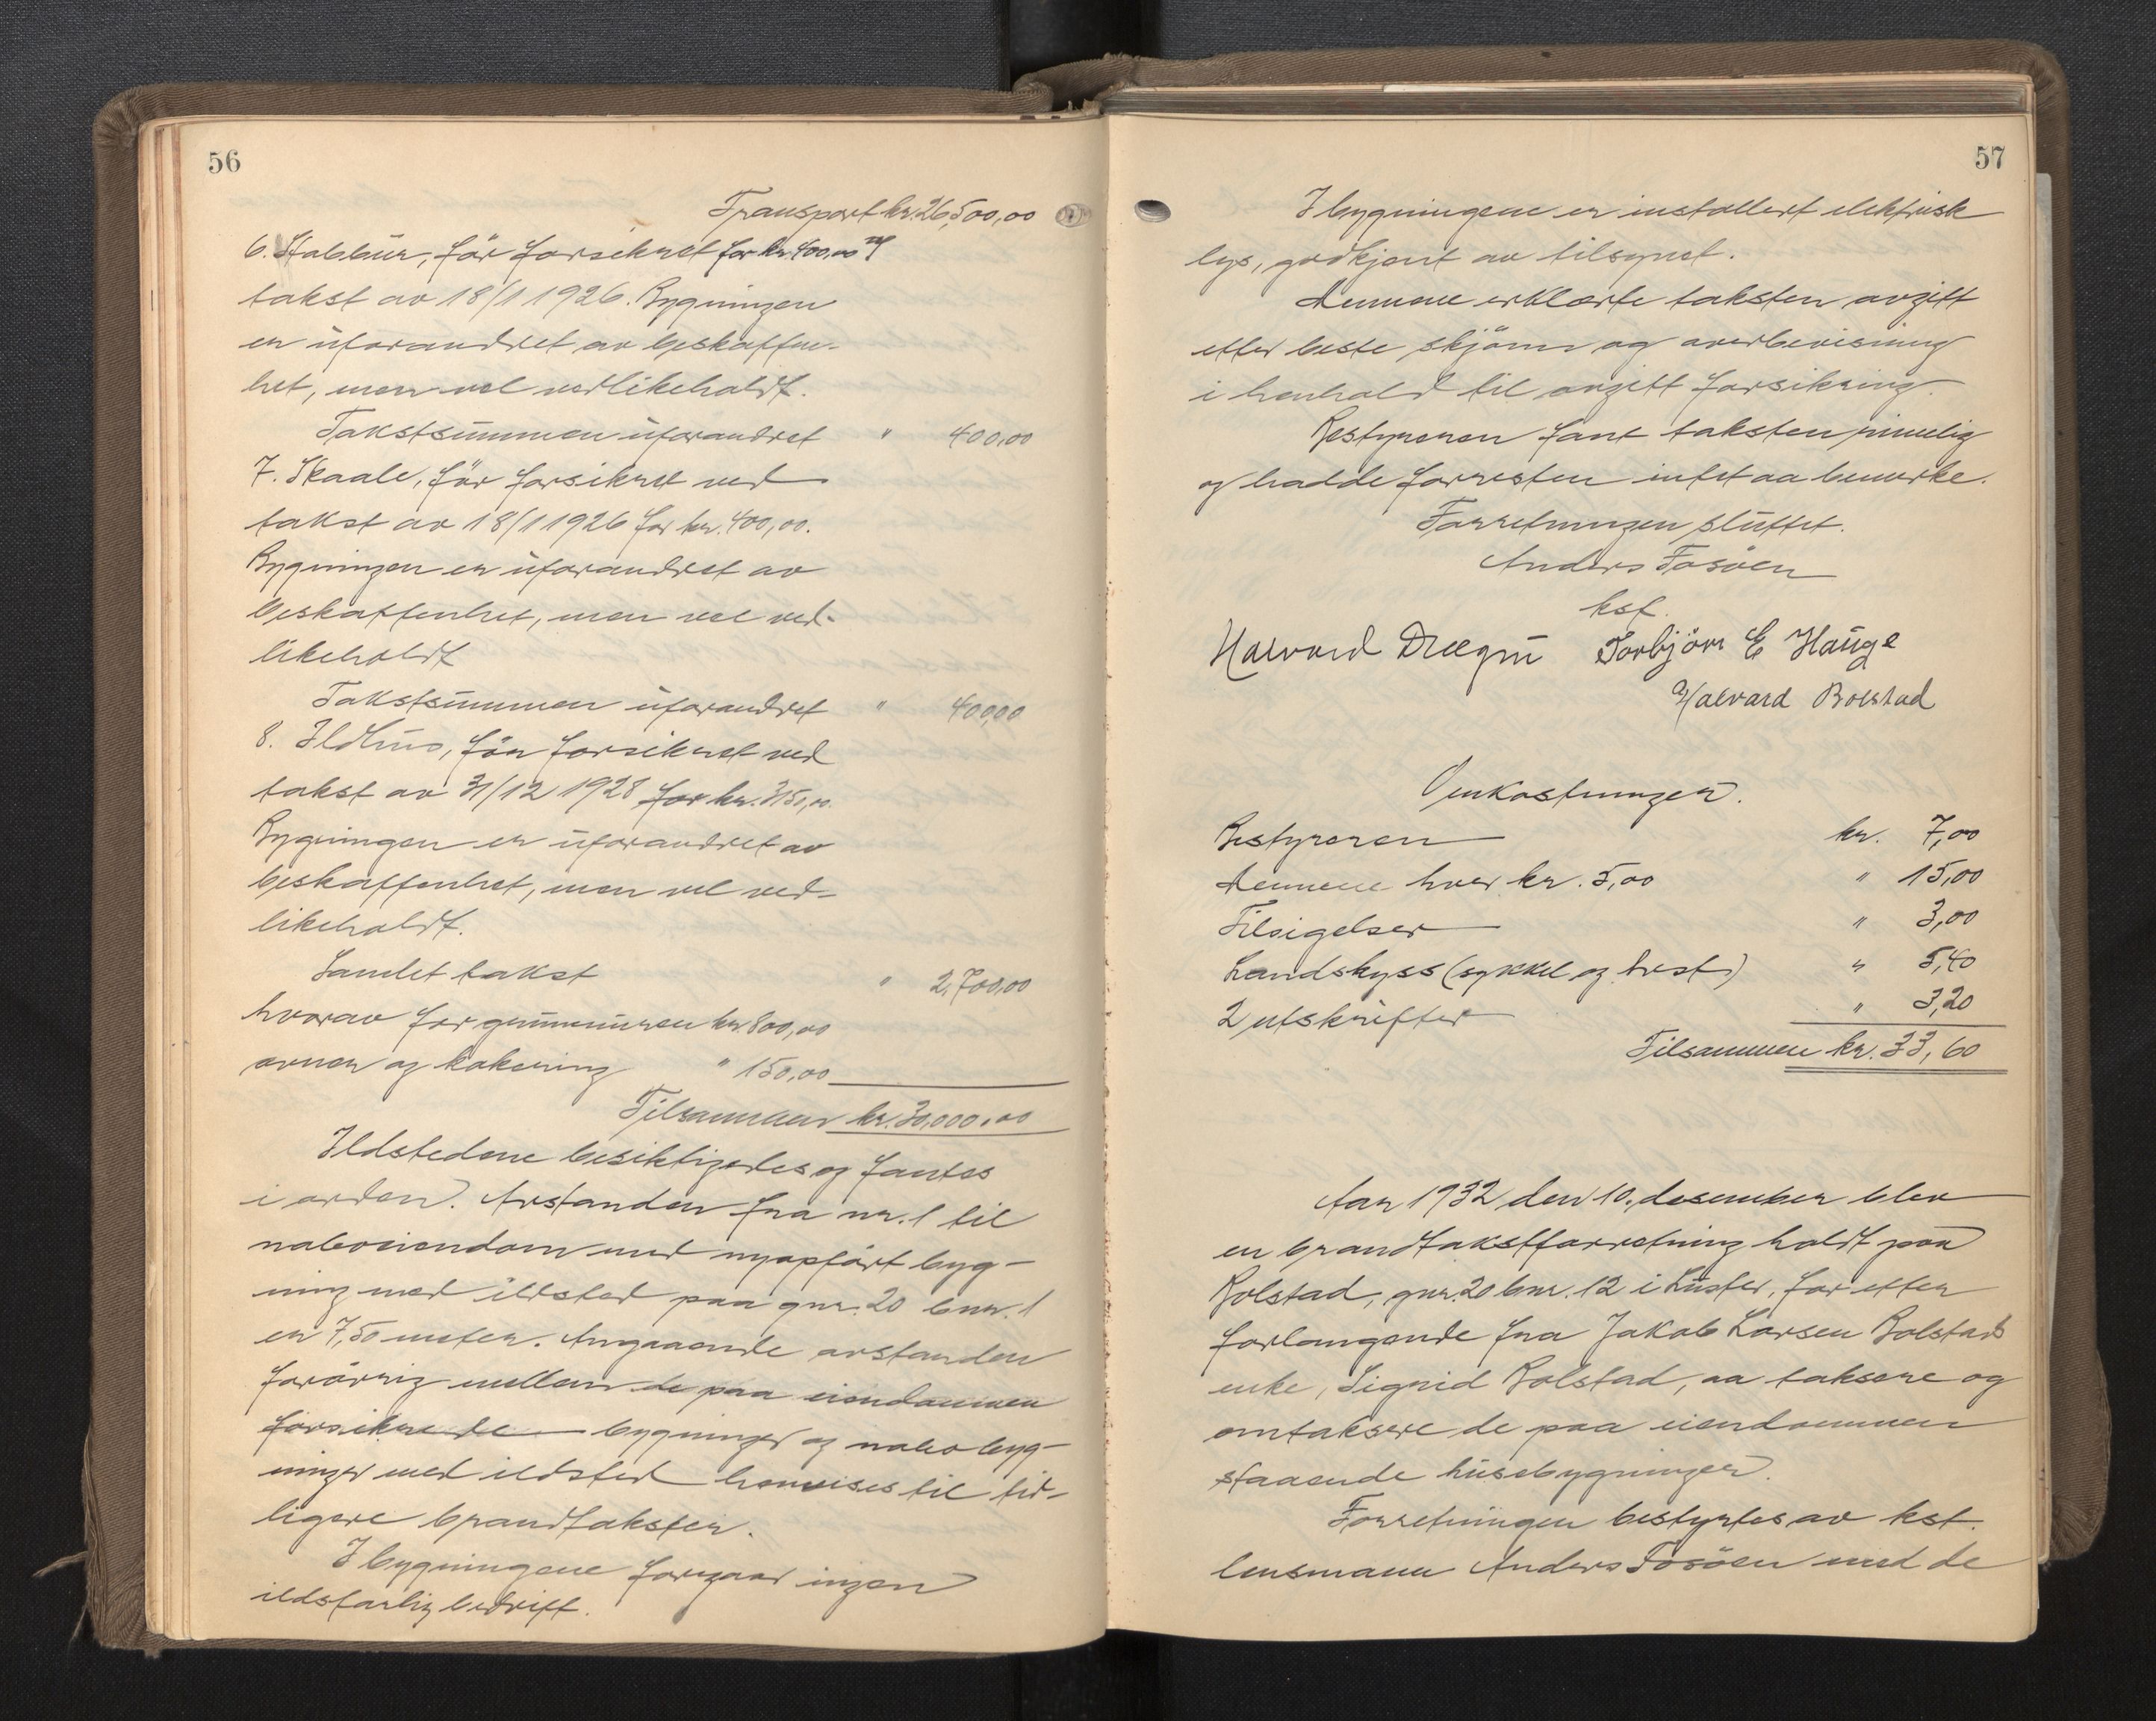 56
Transport kr. 26,500,00
6. Stabbur, før forsikret for kr. 400,00 ved
takst av 18/1 1926. Bygningen
er uforandret av beskaffen-
het, men vel vedlikeholdt.
Takstsummen uforandret " 400,00
7. Skaale, før forsikret ved
takst av 18/1 1926 for kr. 400,00.
Bygningen er uforandret av
beskaffenhet, men vel ved-
likeholdt
Takstsummen uforandret " 400,00
8. Ildhus, før forsikret ved
takst av 31/12 1928 for kr. 3150,00.
Bygningen er uforandret av
beskaffenhet, men vel ved-
likeholdt.
Samlet takst " 2,700,00
hvorav for grunnmuren kr. 800,00
ovner og kakering " 150,00
Tilsammen kr. 30,000,00
Ildstedene besiktigedes og fantes
i orden. Avstanden fra nr. 1 til
naboeiendom med nyopført byg-
ning med ildsted paa gnr. 20 bnr. 1
er 7,50 meter. Angaaende avstanden
forøvrig mellem de paa eiendommen
forsikrede bygninger og nabobyg-
ninger med ildsted henvises til tid-
ligere brandtakster.
I bygningene foregaar ingen
ildsfarlig bedrift.
57
I bygningene er installert elektrisk
lys, godkjent av tilsynet.
Mennene erklærte taksten avgitt
efter beste skjønn og overbevisning
i henhold til avgitt forsikring.
Bestyreren fant taksten rimelig
og hadde forresten intet aa bemerke.
Forretningen sluttet.
Anders Fosøen
kst.
Halvard Drægni Torbjörn E Hauge
Halvard Bolstad
Omkostninger.
Bestyreren kr. 7,00
Mennene hver kr. 5,00 " 15,00
Tilsigelser " 3,00
Landskyss (sykkel og hest) " 5,40
2 utskrifter " 3,20
Tilsammen kr. 33,60
Aar 1932 den 10. desember blev
en brandtakstforretning holdt paa
Bolstad, gnr. 20 bnr. 12 i Luster, for efter
forlangende fra Jakob Larsen Bolstads
enke, Sigrid Bolstad, aa taksere og
omtaksere de paa eiendommen
staaende husebygninger.
Forretningen bestyrtes av kst.
lensmann Anders Fosøen med de